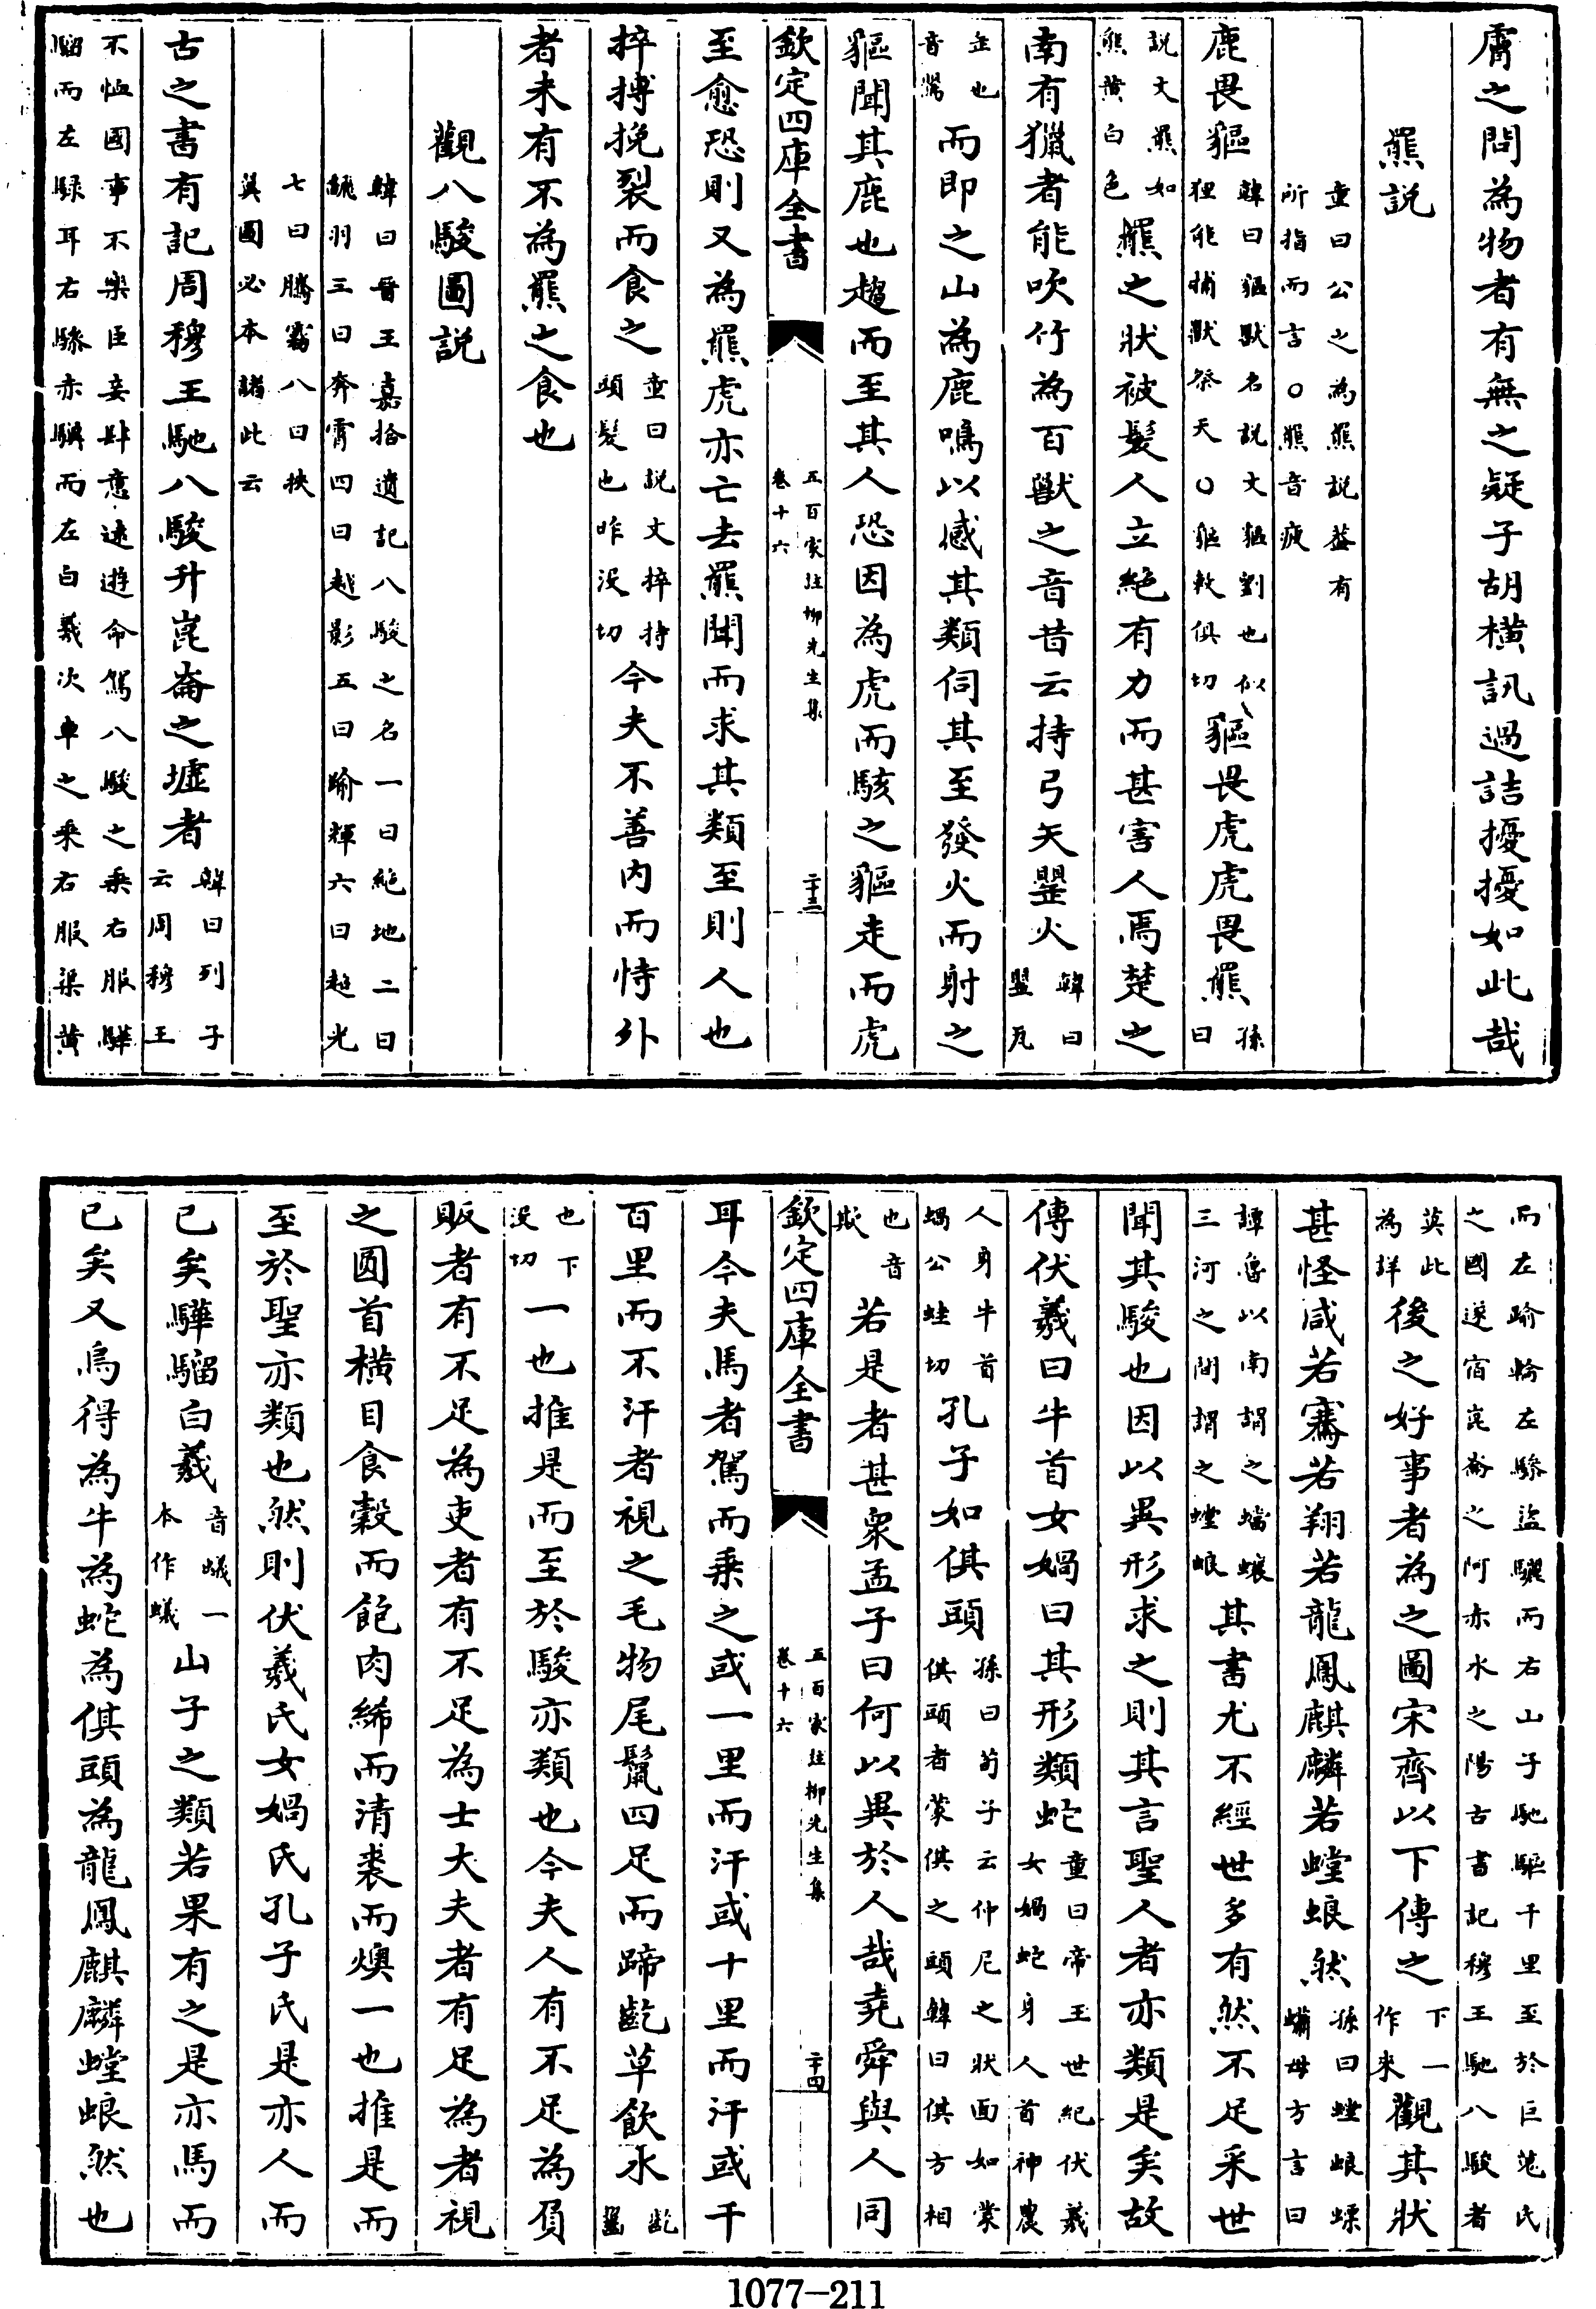 膚之問為物者有無之疑子胡橫訊過詰擾擾如此哉
羆説
童曰公之為羆説葢有
所指而言〇羆音疲
鹿畏貙韓曰貙獸名説文貙劉也似狸能捕獸祭天〇貙敕俱切貙畏虎虎畏羆孫曰
説文羆如熊黄白色羆之狀被髮人立絶有力而甚害人焉楚之
南有獵者能吹竹為百獸之音昔云持弓矢罌火韓曰罌瓦
缶也音鸎而即之山為鹿鳴以感其類伺其至發火而射之
貙聞其鹿也趨而至其人恐因為虎而駭之貙走而虎
欽定四庫全書
五百家註柳先生集
卷十六
二十三
至愈恐則又為羆虎亦亡去羆聞而求其類至則人也
捽搏挽裂而食之童曰説文捽持頭髮也昨没切今夫不善内而恃外
者未有不為羆之食也
觀八駿圖説
韓曰晉王嘉拾遺記八駿之名一曰絶地二曰
翻羽三曰奔霄四曰越影五曰踰輝六曰超光
七曰騰霧八曰挾
翼圖必本諸此云
古之書有記周穆王馳八駿升崑崙之墟者韓曰列子云周穆王
不恤國事不樂臣妾肆意遠遊命駕八駿之乗右服驊
騮而左騄耳右驂赤驥而左白羲次車之乘右服渠黄
而左踰輪左驂盜驪而右山子馳驅千里至於巨蒐氏
之國遂宿崑崙之阿赤水之陽古書記穆王馳八駿者
莫此為詳後之好事者為之圖宋齊以下傳之下一作來觀其狀
甚怪咸若騫若翔若龍鳳麒麟若螳蜋然孫曰螳蜋蟷蠰母方言曰
譚魯以南謂之蟷蠰三河之間謂之螳蜋其書尤不經世多有然不足采世
聞其駿也因以異形求之則其言聖人者亦類是矣故
傳伏羲曰牛首女媧曰其形類蛇童曰帝王世紀伏羲女媧蛇身人首神農
人身牛首媧公蛙切孔子如倛頭孫曰荀子云仲尼之狀面如蒙倛頭者蒙倛之頭韓曰倛方相
也音欺若是者甚衆孟子曰何以異於人哉堯舜與人同
欽定四庫全書
五百家註柳先生集
卷十六
二十四
耳今夫馬者駕而乗之或一里而汗或十里而汗或千
百里而不汗者視之毛物尾鬣四足而蹄齕草飲水齕齧
也下没切一也推是而至於駿亦類也今夫人有不足為負
販者有不足為吏者有不足為士大夫者有足為者視
之圓首橫目食穀而飽肉絺而清裘而燠一也推是而
至於聖亦類也然則伏羲氏女媧氏孔子氏是亦人而
已矣驊騮白羲音蟻一本作蟻山子之類若果有之是亦馬而
已矣又烏得為牛為蛇為倛頭為龍鳳麒麟螳蜋然也
1077-211